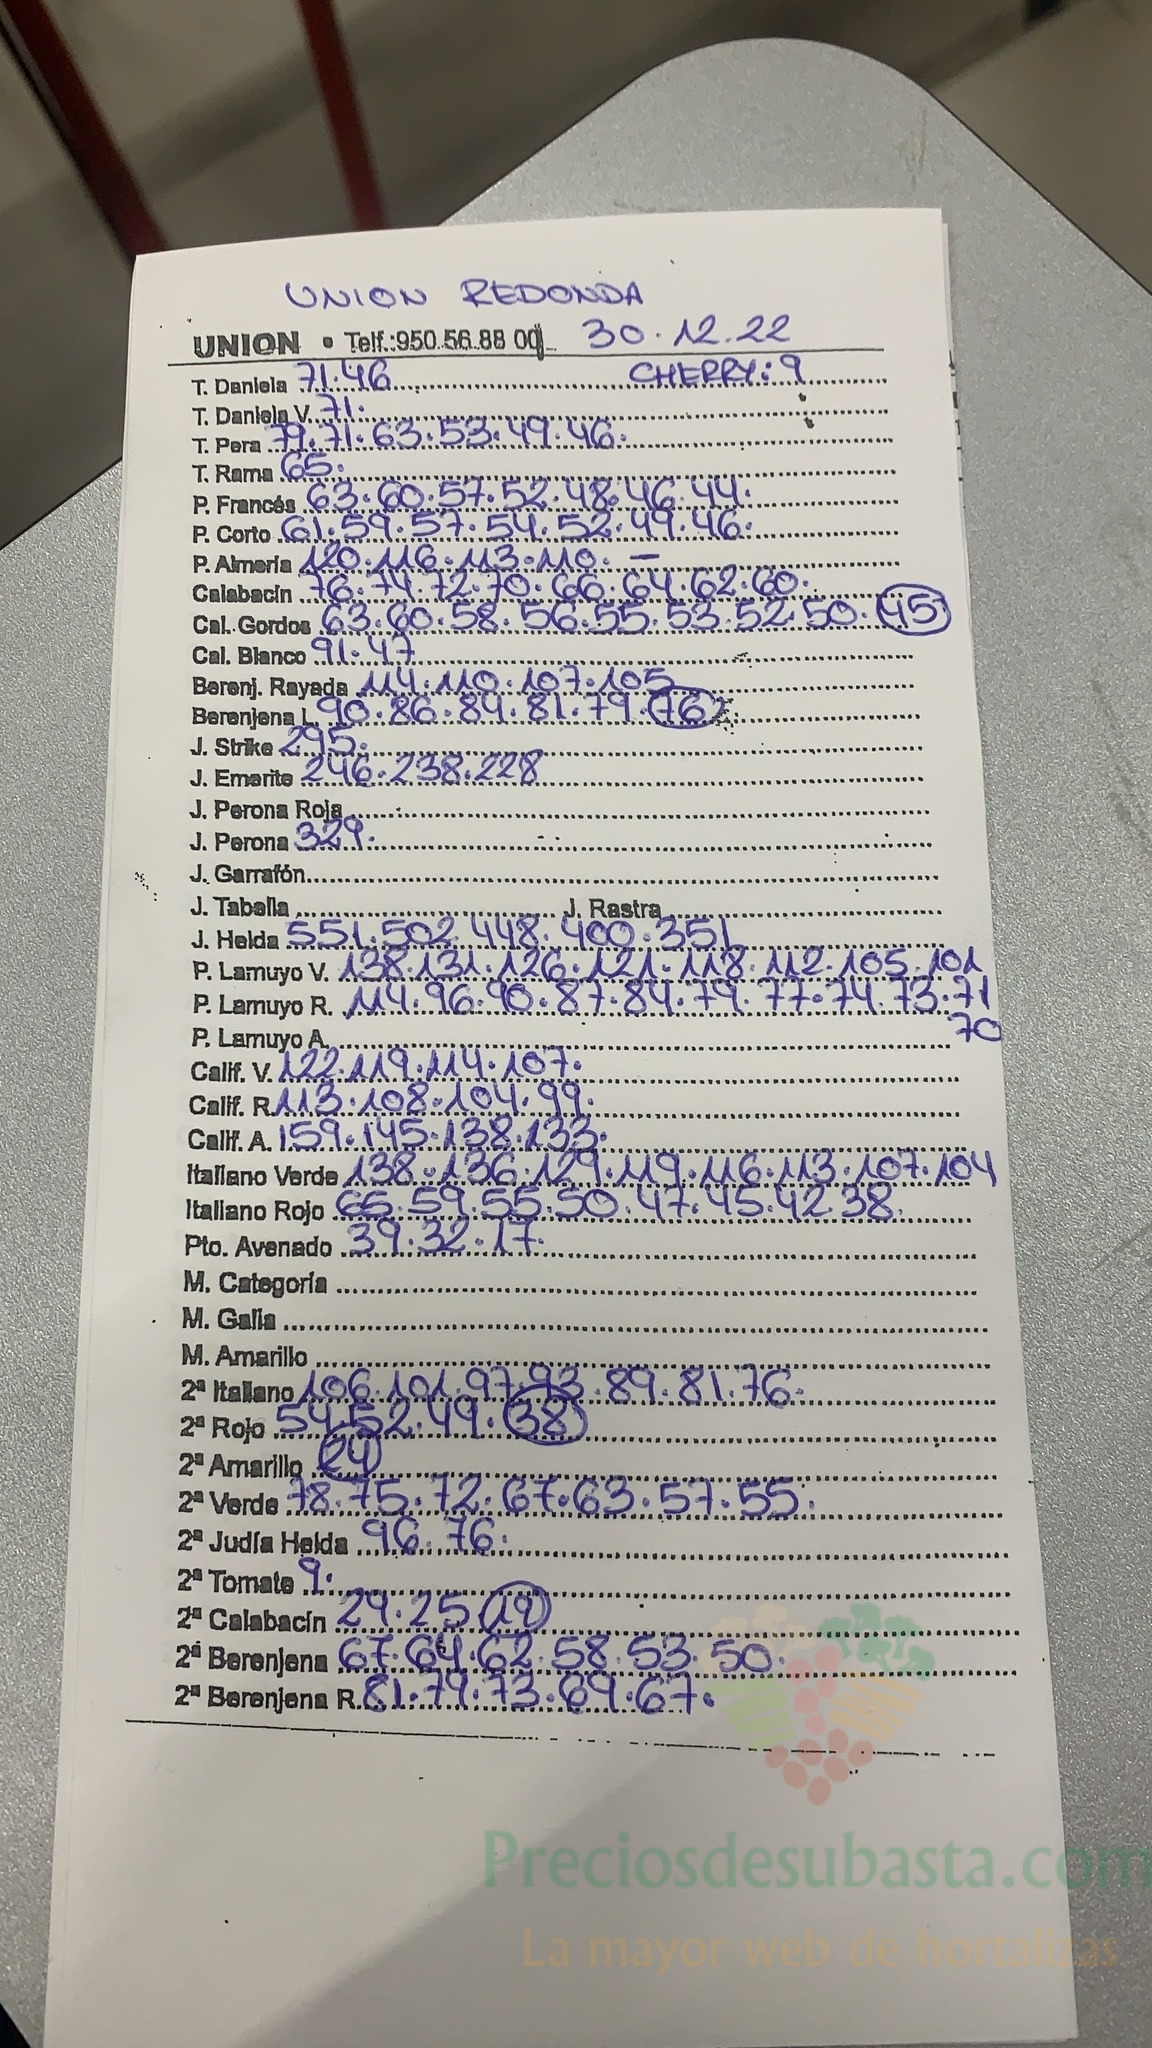 UNION REDONDA
UNION • Telf.:950.56.88 00 30.12.22
T. Daniela 71.46 CHERRY: 9
T. Daniela V. 71.
T. Pera 79.71.63.53.49.46.
T. Rama 65.
P. Francés 63.60.57.52.48.46.44.
P. Corto 61.59.57.54.52.49.46.
P. Almería 120.116.113.110. —
Calabacín 76.74.72.70.66.64.62.60.
Cal. Gordos 63.60.58.56.55.53.52.50. 45
Cal. Blanco 91.47
Berenj. Rayada 114.110.107.105
Berenjena L. 90.86.84.81.79.76
J. Strike 295.
J. Emerite 246.238.228
J. Perona Roja
J. Perona 329.
J. Garrafón
J. Tabella J. Rastra
J. Helda 551.502.448.400.351
P. Lamuyo V. 138.131.126.121.118.112.105.101
P. Lamuyo R. 114.96.90.87.84.79.77.74.73.71
70
P. Lamuyo A.
Calif. V. 122.119.114.107.
Calif. R. 113.108.104.99.
Calif. A. 159.145.138.133.
Italiano Verde 138.136.129.119.116.113.107.104
Italiano Rojo 65.59.55.50.47.45.42.38.
Pto. Avenado 39.32.17.
M. Categoría
M. Galia
M. Amarillo
2ª Italiano 106.101.97.93.89.81.76.
2ª Rojo 54.52.49.38
2ª Amarillo 24
2ª Verde 78.75.72.67.63.57.55.
2ª Judía Helda 96.76.
2ª Tomate 9.
2ª Calabacín 29.25 19
2ª Berenjena 67.64.62.58.53.50.
2ª Berenjena R. 81.79.73.69.67.
Preciosdesubasta.com
La mayor web de hortalizas